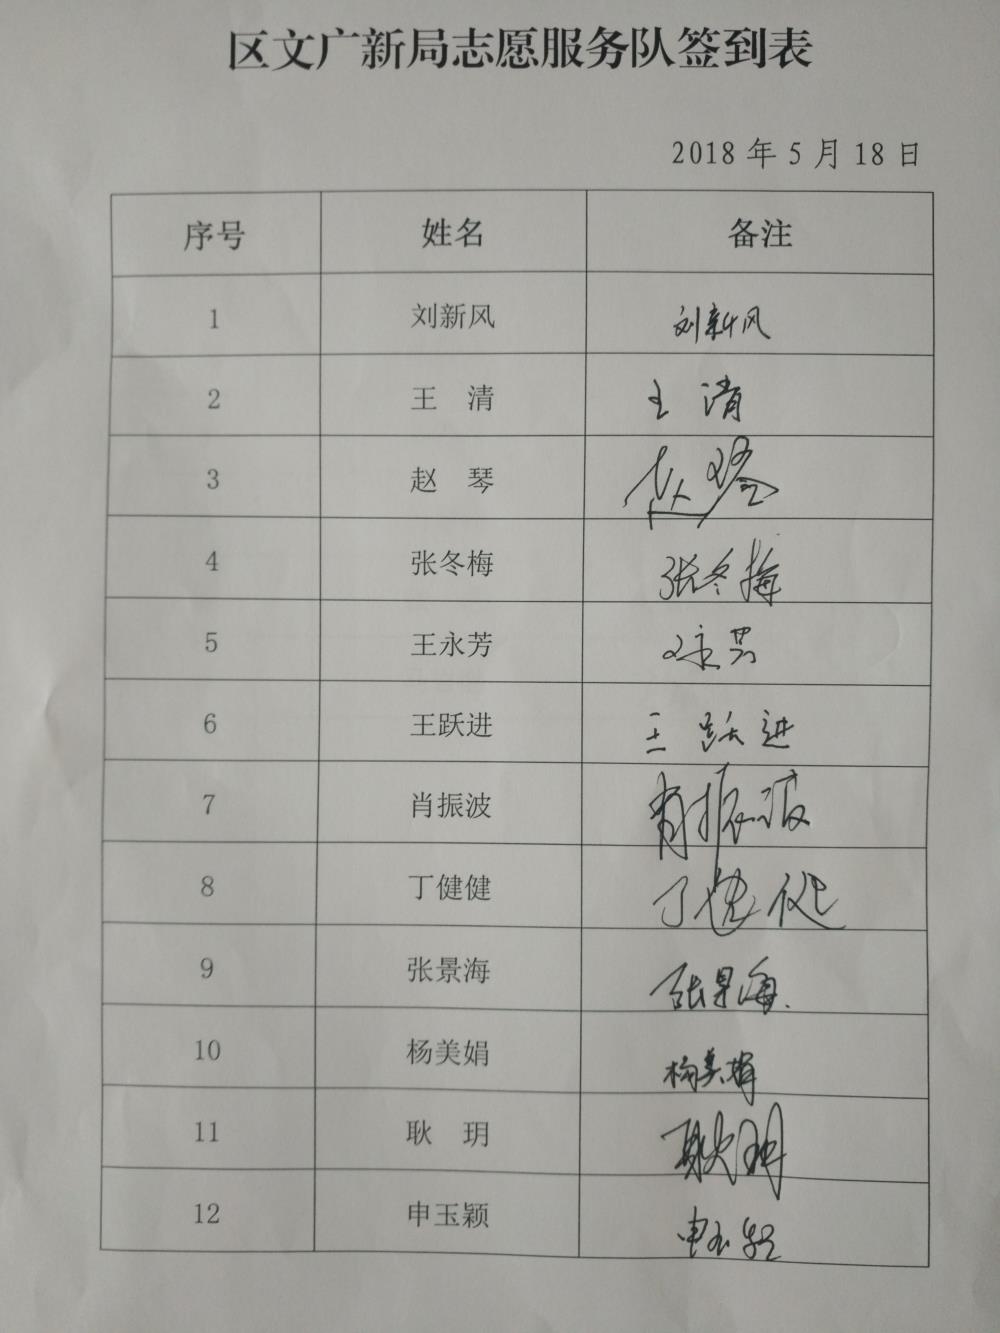 区文广新局志愿服务队签到表
2018 年 5 月 18 日
序号 姓名 备注
1 刘新风 刘新风
2 王 清 王 清
3 赵 琴 赵琴
4 张冬梅 张冬梅
5 王永芳 王永芳
6 王跃进 王跃进
7 肖振波 肖振波
8 丁健健 丁健健
9 张景海 张景海
10 杨美娟 杨美娟
11 耿 玥 耿玥
12 申玉颖 申玉颖